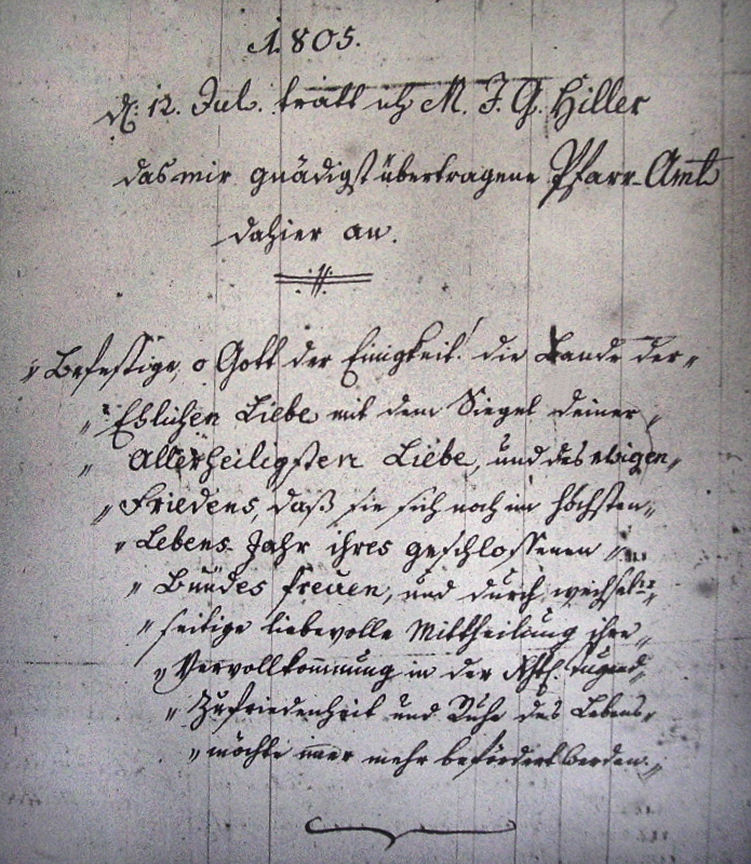 1805.
d. 12. Jul. tratt ich M. J. G. Hiller
das mir gnädigst übertragene Pfarr-Amt
dahier an.
„Befestige, o Gott der Einigkeit! die Bande der„
„Ehlichen Liebe mit dem Siegel deiner„
„Allerheiligsten Liebe, und des ewigen„
„Friedens, daß sie sich noch im höchsten„
„Lebens-Jahr ihres geschlossenen„
„Bundes freuen, und durch wechsel=„
„seitige liebevolle Mittheilung ihre„
„Vervollkom̅nung in der Tugend„
„Zufriedenheit und Ruhe des Lebens„
„möchte im̅er mehr befördert werden.„